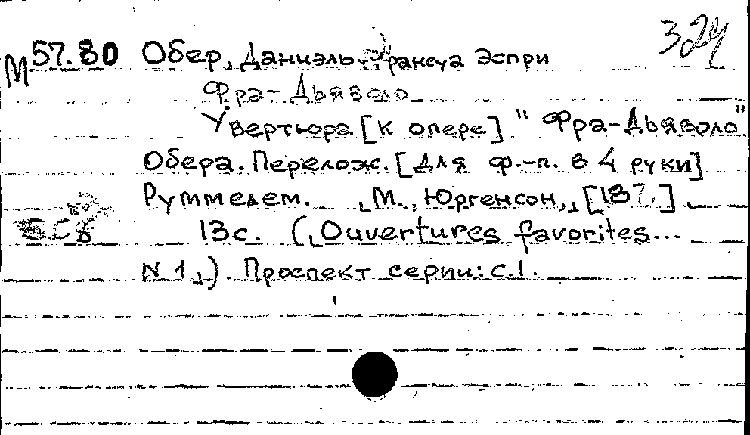 324
М57.80 Обер, Даниэль-Франсуа Эспри
Фра-Дьяволо
Увертюра [к опере] "Фра-Дьяволо"
Обера. Перелож. [для ф.-п. в 4 руки]
Руммелем. М., Юргенсон, [187.].
13с. (Ouvertures favorites...
N 1). Проспект серии: с.1.